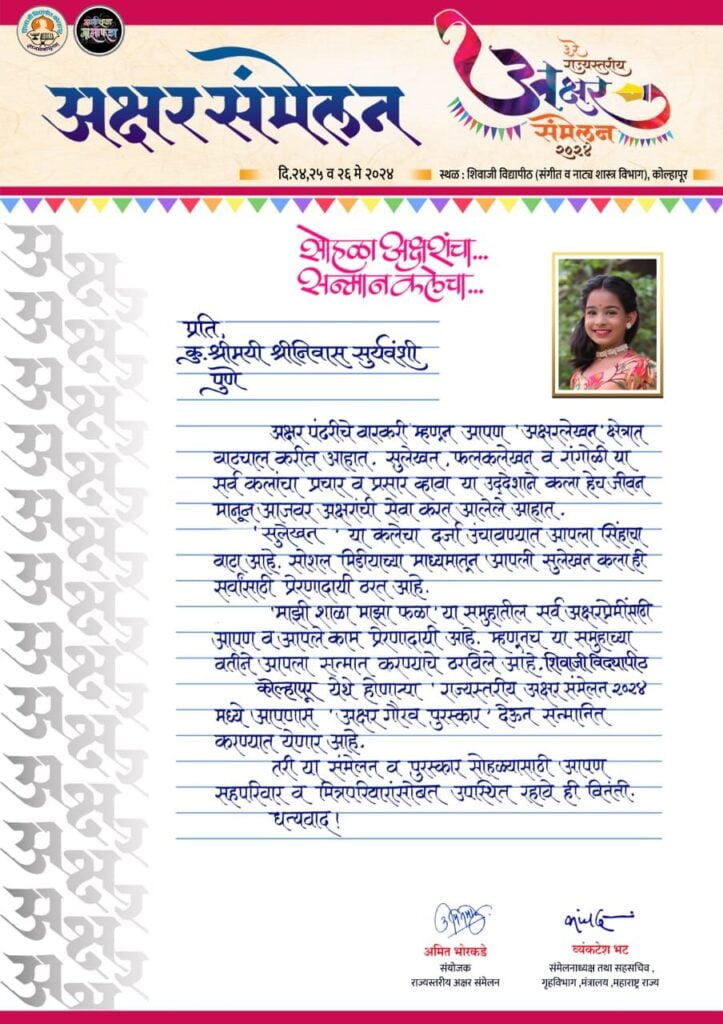 अक्षर संमेलन
३रे
राज्यस्तरीय
अक्षर
संमेलन
२०२४
दि.२४,२५ व २६ मे २०२४
स्थळ : शिवाजी विद्यापीठ (संगीत व नाट्य शास्त्र विभाग), कोल्हापूर
सोहळा अक्षरांचा...
सन्मान कलेचा...
प्रति,
कु. श्रीमयी श्रीनिवास सुर्यवंशी
पुणे
अक्षर पंढरीचे वारकरी म्हणून आपण 'अक्षरलेखन' क्षेत्रात
वाटचाल करीत आहात. सुलेखन, फलकलेखन व रांगोळी या
सर्व कलांचा प्रचार व प्रसार व्हावा या उद्देशाने कला हेच जीवन
मानून आजवर अक्षरांची सेवा करत आलेले आहात.
'सुलेखन ' या कलेचा दर्जा उंचावण्यात आपला सिंहाचा
वाटा आहे. सोशल मिडीयाच्या माध्यमातून आपली सुलेखन कला ही
सर्वांसाठी प्रेरणादायी ठरत आहे.
'माझी शाळा माझा फळा' या समुहातील सर्व अक्षरप्रेमींसाठी
आपण व आपले काम प्रेरणादायी आहे. म्हणूनच या समुहाच्या
वतीने आपला सन्मान करण्याचे ठरविले आहे. शिवाजी विद्यापीठ
कोल्हापूर येथे होणाऱ्या 'राज्यस्तरीय अक्षर संमेलन २०२४
मध्ये आपणास 'अक्षर गौरव पुरस्कार' देऊन सन्मानित
करण्यात येणार आहे.
तरी या संमेलन व पुरस्कार सोहळ्यासाठी आपण
सहपरिवार व मित्रपरिवारांसोबत उपस्थित रहावे ही विनंती.
धन्यवाद!
अमित भोरकडे
संयोजक
राज्यस्तरीय अक्षर संमेलन
व्यंकटेश भट
संमेलनाध्यक्ष तथा सहसचिव ,
गृहविभाग ,मंत्रालय ,महाराष्ट्र राज्य